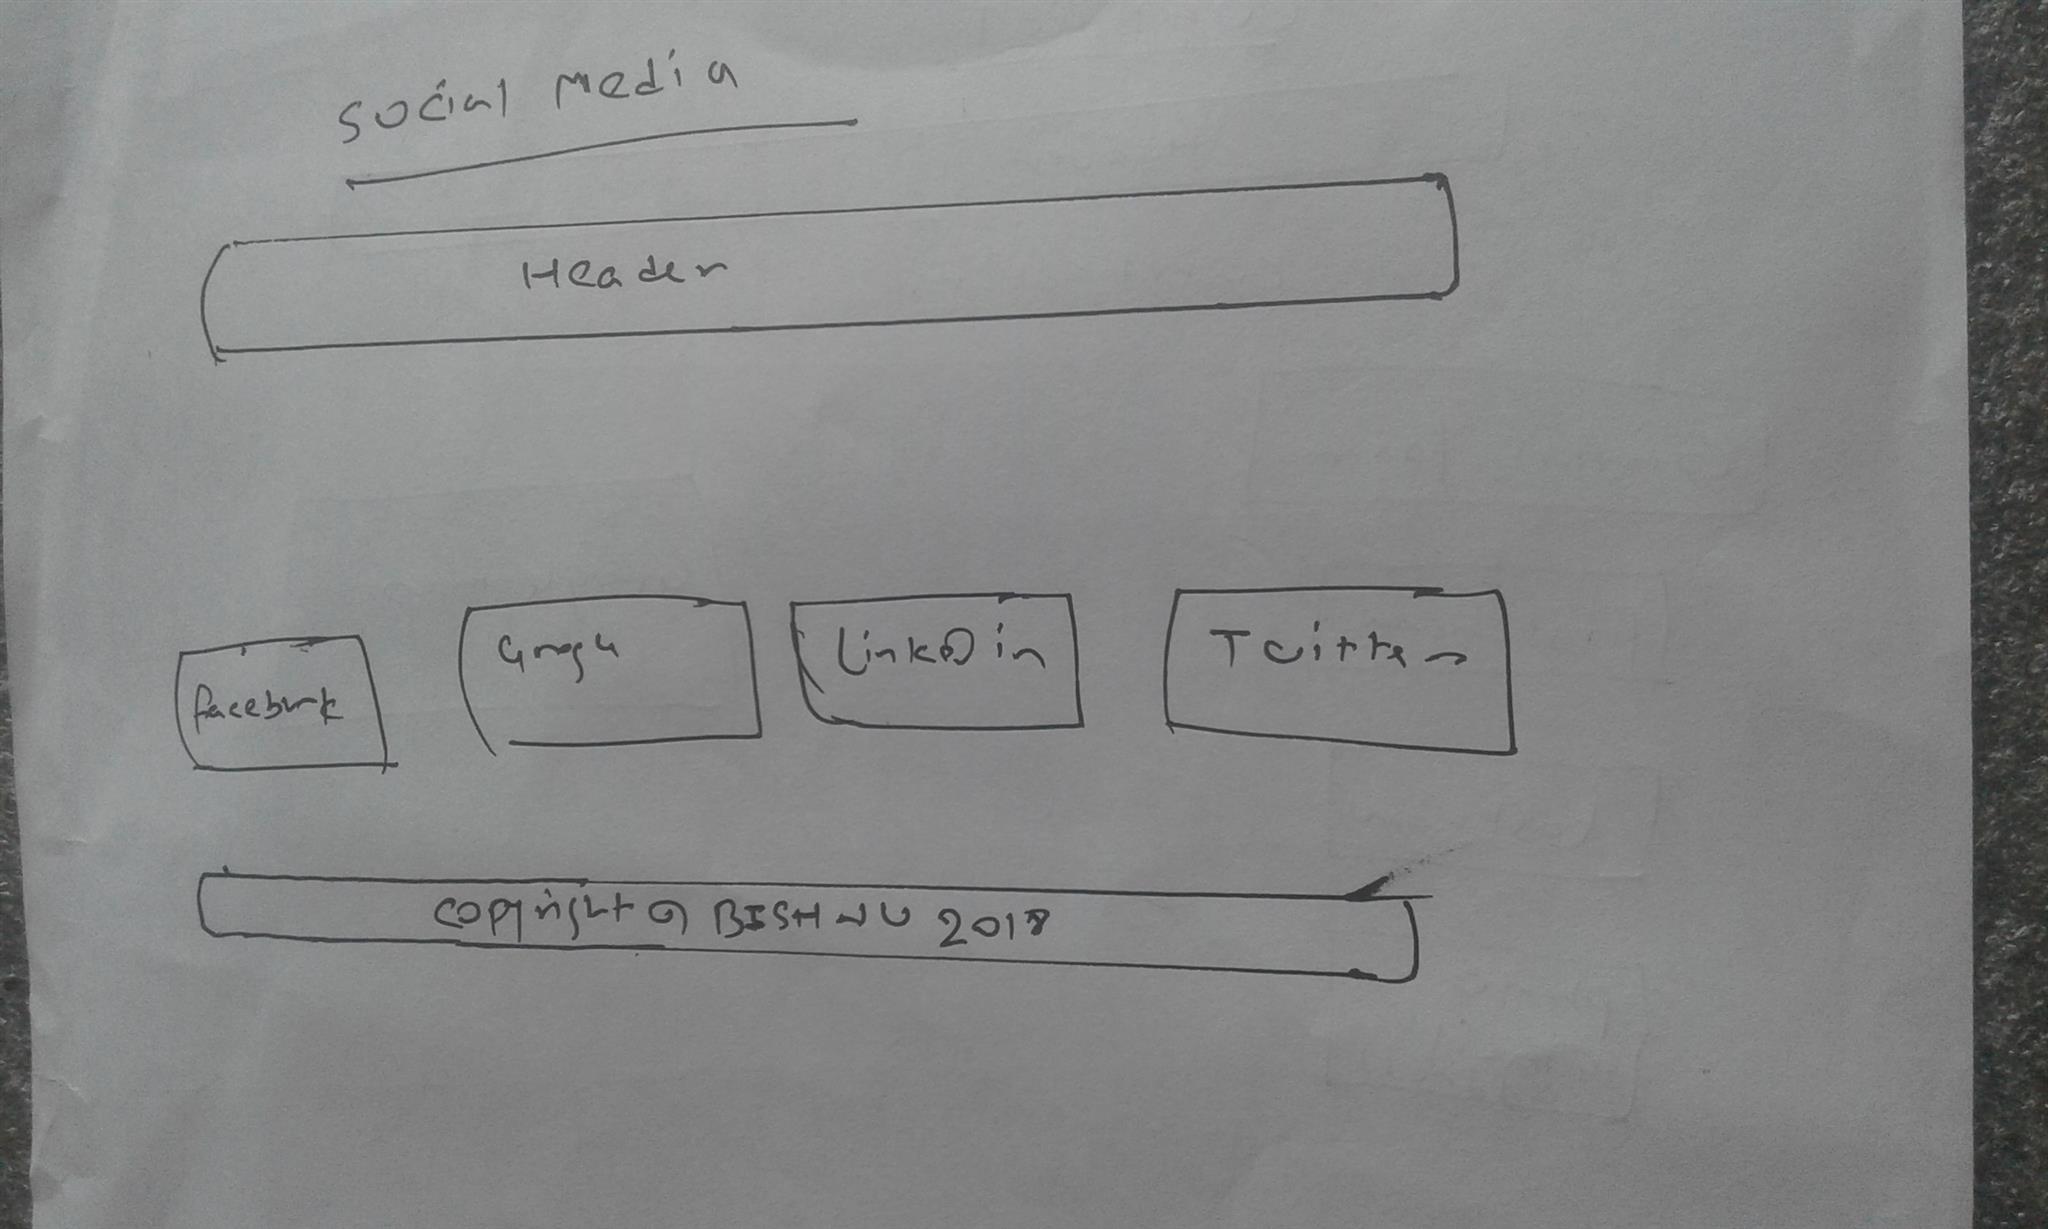 Social Media
Header
facebook
Google
Linkedin
Twitter
copyright @ BISHNU 2018